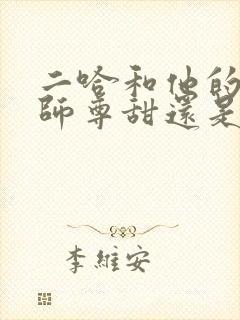 二哈和他的
師尊甜還是
李維安